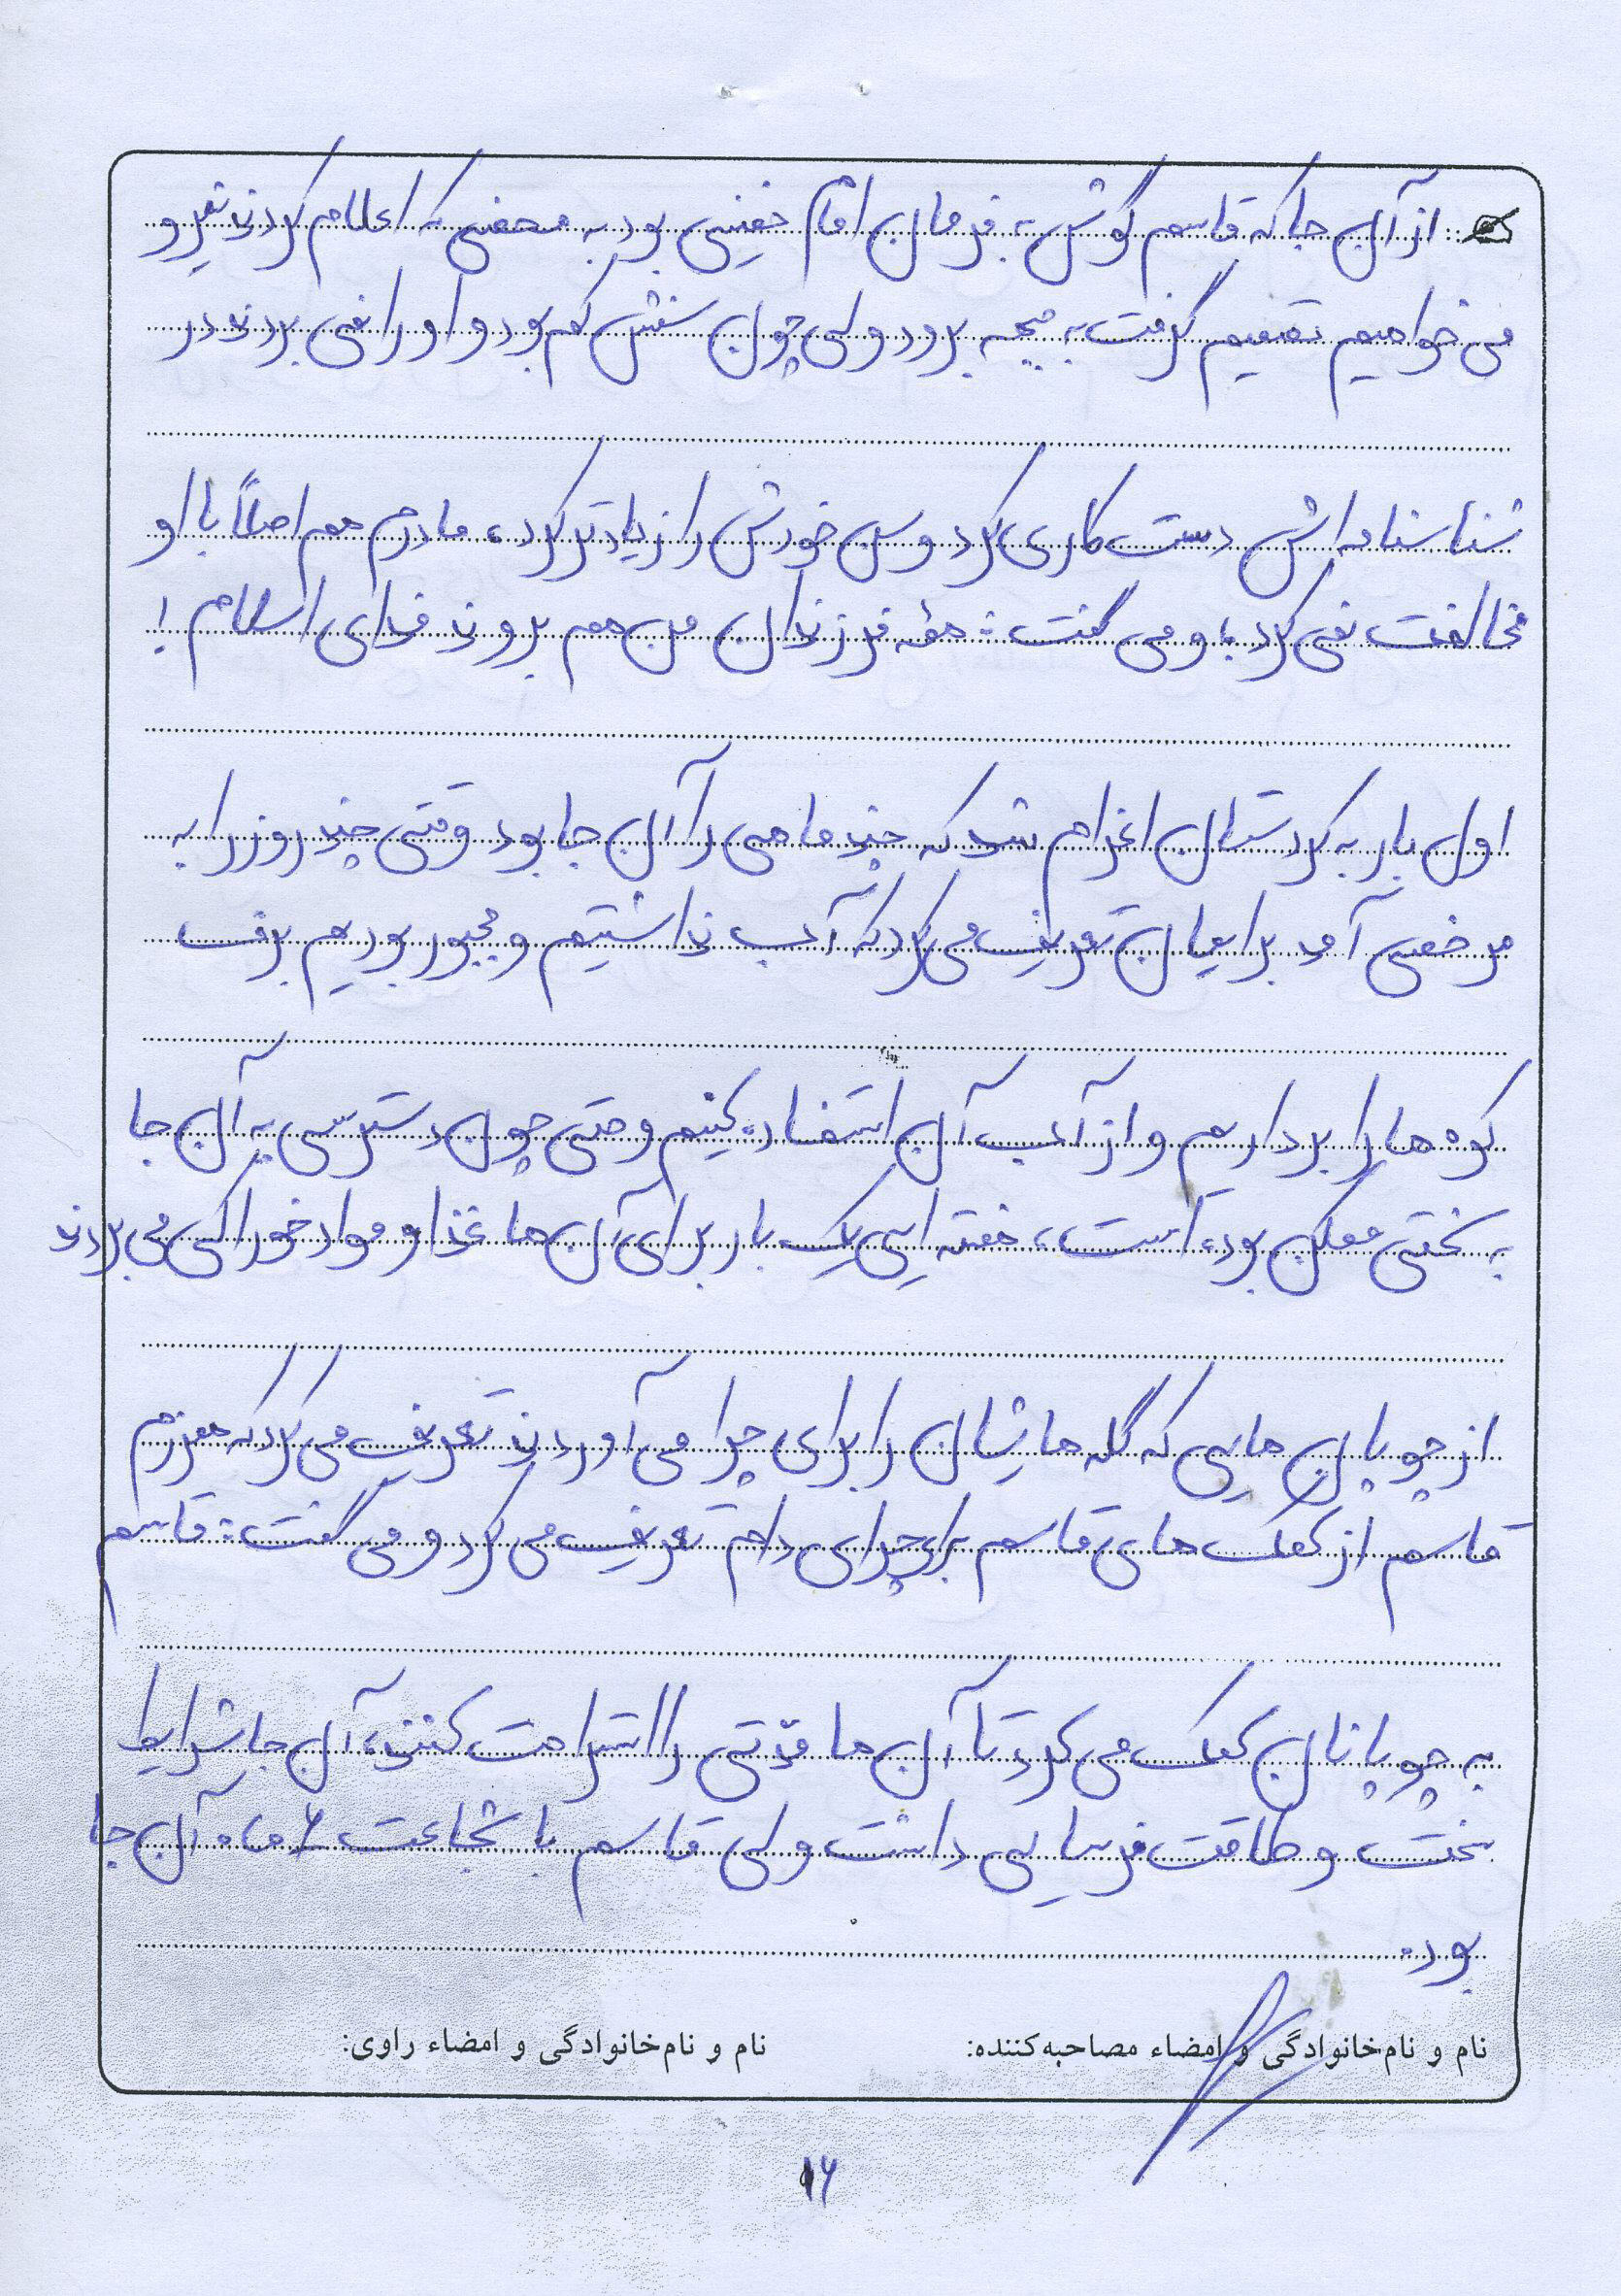 از آن جا که قاسم گوش به فرمان امام خمینی بود به محضی که اعلام کردند نیرو
می خواهیم تصمیم گرفت به جبهه برود ولی چون سنش کم بود و او را نمی بردند در
شناسنامه اش دست کاری کرد و سن خودش را زیادتر کرد، مادرم هم اصلاً با او
مخالفت نمی کرد، و می گفت: همه فرزندان من هم بروند فدای اسلام!
اول بار به کردستان اعزام شد که چند ماهی را آن جا بود وقتی چند روز را به
مرخصی آمد برایمان تعریف می کرد که آب نداشتیم و مجبور بودیم برف
کوه ها را برداریم و از آب آن استفاده کنیم و حتی چون دسترسی به آن جا
به سختی ممکن بوده است، هفته ایی یک بار برای آن ها غذا و مواد خوراکی می بردند
از چوپان هایی که گله هایشان را برای چرا می آوردند تعریف می کرد که همرزم
قاسم از کمک های قاسم برای چرای دام تعریف می کرد و می گفت: قاسم
به چوپانان کمک می کرد تا آن ها مدّتی را استراحت کنند، آن جا شرایط
سخت و طاقت فرسایی داشت ولی قاسم با شجاعت ۶ ماه آن جا
بود.
نام و نام‌خانوادگی و امضاء مصاحبه‌کننده: نام و نام‌خانوادگی و امضاء راوی:
۱۶